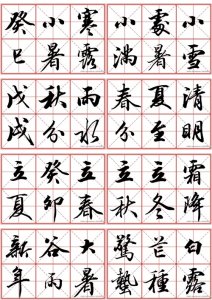 癸小寒 小處小
巳暑露 滿暑雪
戊秋雨 春夏清
戌分水 分至明
立癸立 立立霜
夏卯春 秋冬降
新谷大 驚芒白
年雨暑 蟄種露